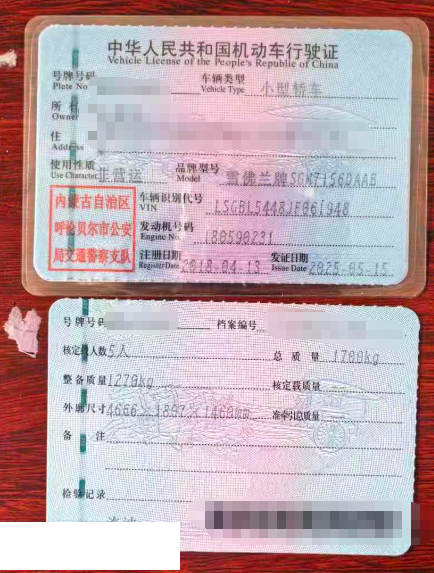 中华人民共和国机动车行驶证
Vehicle License of the People's Republic of China
号牌号码 车辆类型 小型轿车
Plate No Vehicle Type
所
Owner
住
Address
使用性质 非营运 品牌型号 雪佛兰牌SGM7156DAAB
Use Character Model
内蒙古自治区
呼伦贝尔市公安
局交通警察支队
车辆识别代号 LSGBL5448JF061948
VIN
发动机号码 180590231
Engine No.
注册日期 2018-04-13 发证日期 2025-05-15
Register Date Issue Date
号牌号码 档案编号
核定载人数 5人 总质量 1700kg
整备质量 1270kg 核定载质量
外廓尺寸 4666×1807×1460mm 准牵引总质量
备注
检验记录